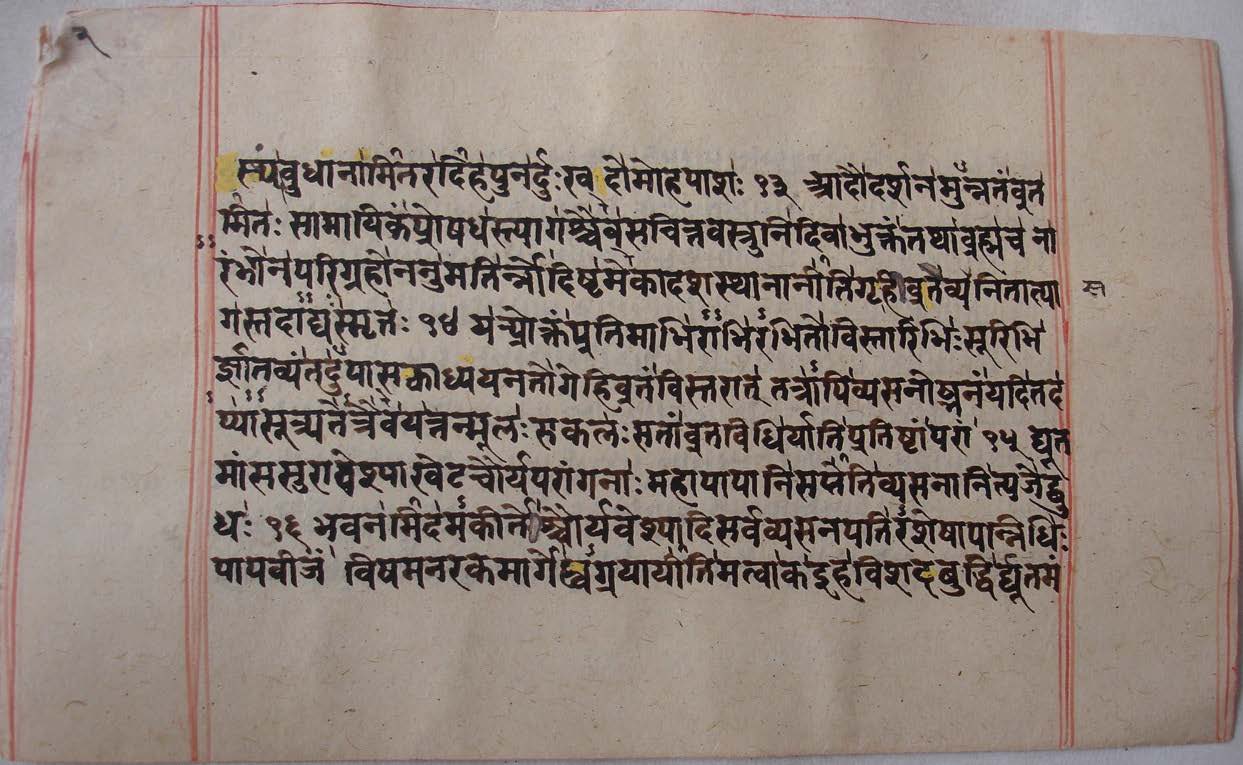 स्त्यं बुधानामितरदिह पुनर्दुःखदो मोहपाशः १३ आदौ दर्शनमुन्नतं व्रत
मितः सामायिकं प्रोषधस्त्यागश्चैव सचित्तवस्तुनि दिवा भुक्तं तथा ब्रह्म च ना
रंभो न परिग्रहो ननुमतिर्न्नोद्दिष्टमेकादश स्थानानीति गृहीव्रते व्यनिता त्या
गस्तदाद्यं स्मृतः १४ यत्प्रोक्तं प्रतिमाभिराभिरभितो विस्तारिभिः सूरिभि
र्ज्ञातव्यं तदुपासकाध्ययनतो गेहिव्रतं विस्तरात् तत्रापि व्यसनोज्झनं यदि तद
प्यासूत्र्यतेत्रैव यत्तन्मूलः सकलः सतां व्रतविधिर्याति प्रतिष्टां परां १५ द्यूत
मांससुरावेश्याखेटचौर्यपरांगनाः महापापानि सप्तेति व्यसनानि त्यजेद्बु
धः १६ भवनमिदमकीर्तेश्चौर्यवेश्यादिसर्वव्यसनपतिरशेषापन्निधिः
पापबीजं विषमनरकमार्गेष्वग्रयायीति मत्वा क इह विशदबुद्धिर्द्यूतमं